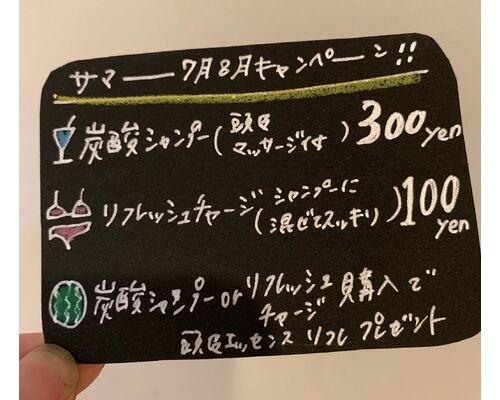 サマー 7月8月キャンペーン!!
炭酸シャンプー(頭皮マッサージ付)300yen
リフレッシュチャージ(シャンプーに混ぜてスッキリ)100yen
炭酸シャンプーorリフレッシュチャージ購入で
頭皮エッセンス リフレ プレゼント